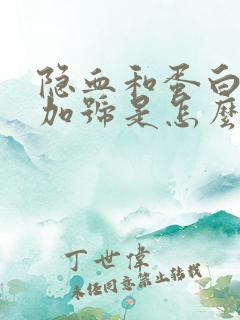 隐血和蛋白
加號是怎麼
丁世偉
未经同意禁止转载